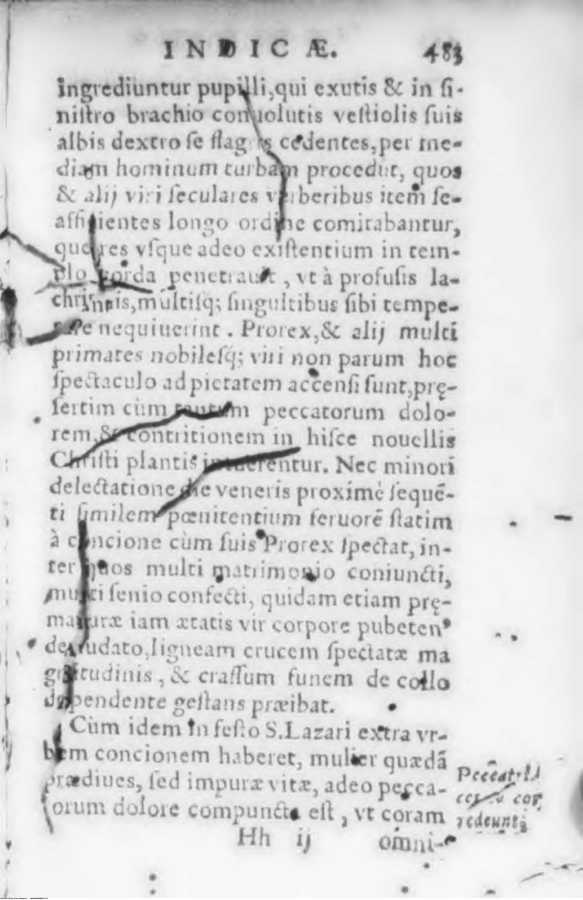 INDICÆ. 483
ingrediuntur pupilli, qui exutis & in si-
nistro brachio conuolutis vestiolis suis
albis dextro se flagris cędentes, per me-
diam hominum turbam procedūt, quos
& alij viri seculares verberibus item se-
afficientes longo ordine comitabantur,
quę res vsque adeo existentium in tem-
plo corda penetrauit, vt à profusis la-
chrimis, multisq; singultibus sibi tempe-
rare nequiuerint. Prorex, & alij multi
primates nobilesq; viri non parum hoc
spectaculo ad pietatem accensi sunt, prę-
sertim cùm tantum peccatorum dolo-
rem, & contritionem in hisce nouellis
Christi plantis intuerentur. Nec minori
delectatione die veneris proximè sequē-
ti similem pœnitentium feruorē statim
à concione cùm suis Prorex spectat, in-
ter quos multi matrimonio coniuncti,
multi senio confecti, quidam etiam prę-
maturæ iam ætatis vir corpore pubeten*
denudato, ligneam crucem spectatæ ma
gnitudinis, & crassum funem de collo
dependente gestans præibat.
Cùm idem in festo S. Lazari extra vr-
bem concionem haberet, mulier quædā
prædiues, sed impuræ vitæ, adeo pecca-
torum dolore compuncta est, vt coram
Hh ij omni-
redeuntis